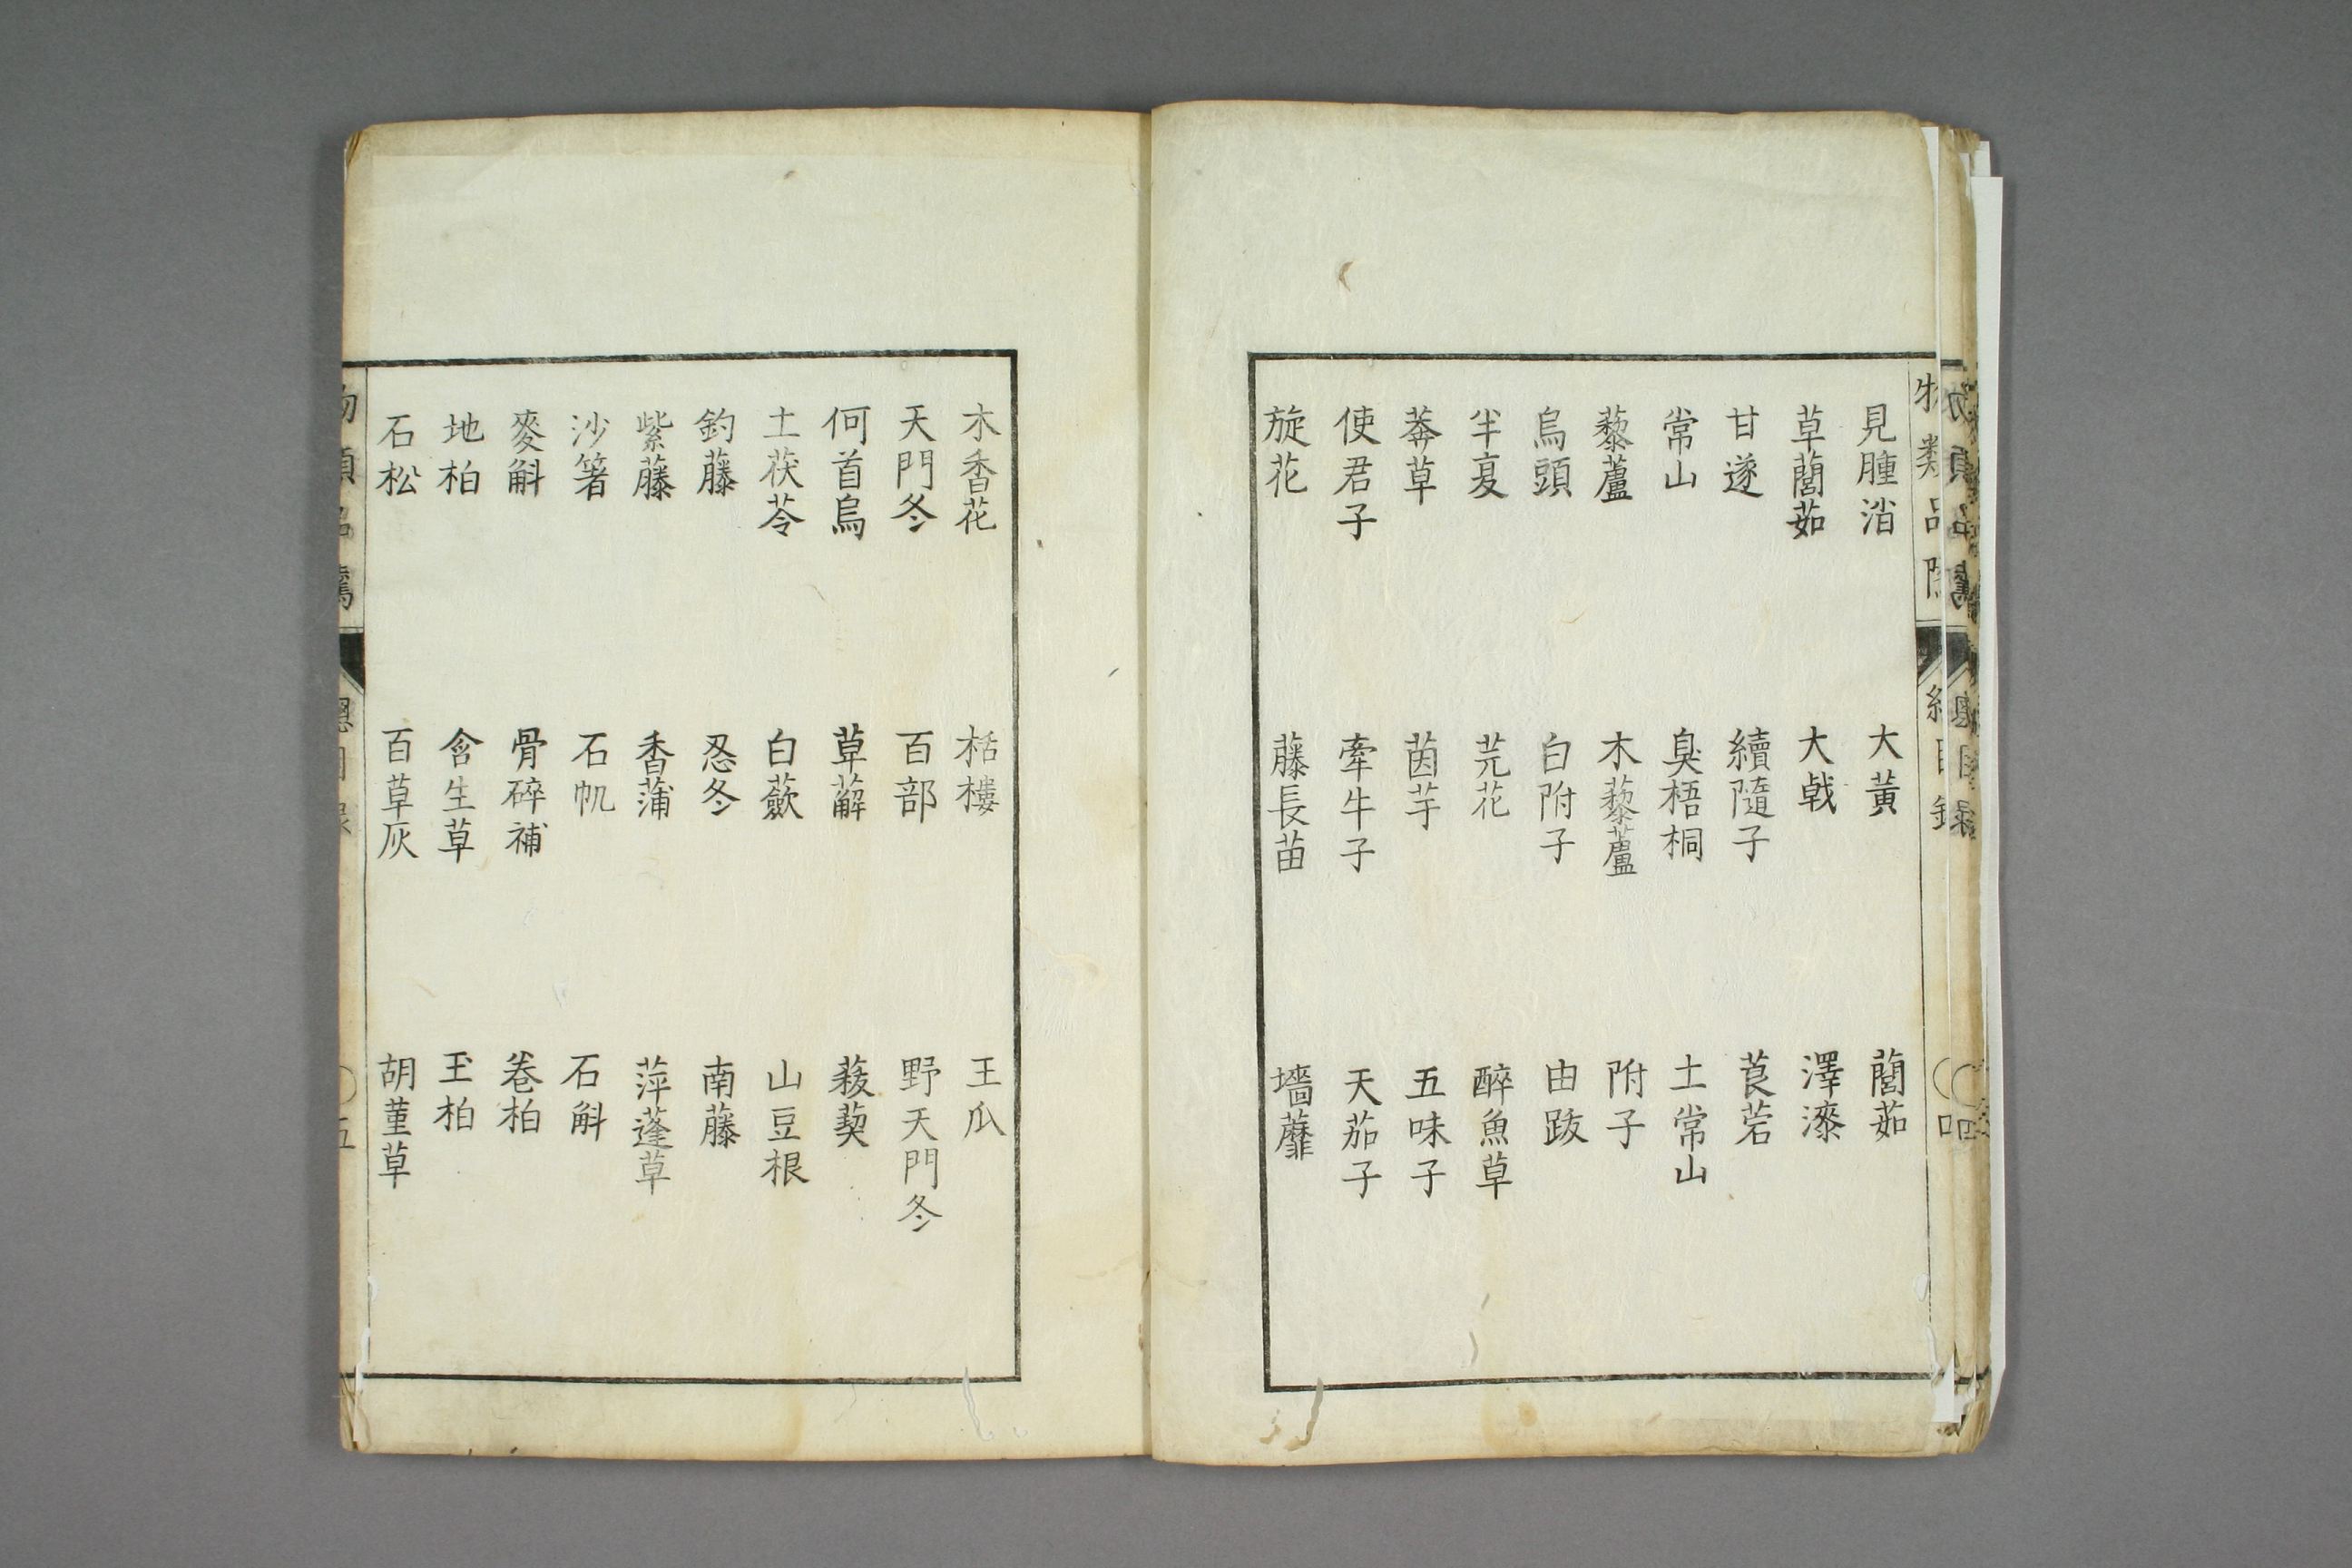 見腫消 大黃 䕡茹
草䕡茹 大戟 澤漆
甘遂 續隨子 莨菪
常山 臭梧桐 土常山
藜蘆 木藜蘆 附子
烏頭 白附子 由跋
半夏 芫花 醉魚草
莽草 茵芋 五味子
使君子 牽牛子 天茄子
旋花 藤長苗 墻蘼
木香花 栝樓 王瓜
天門冬 百部 野天門冬
何首烏 萆薢 菝葜
土茯苓 白蘞 山豆根
釣藤 忍冬 南藤
紫藤 香蒲 萍蓬草
沙箸 石帆 石斛
麥斛 骨碎補 卷柏
地柏 含生草 玉柏
石松 百草灰 胡菫草